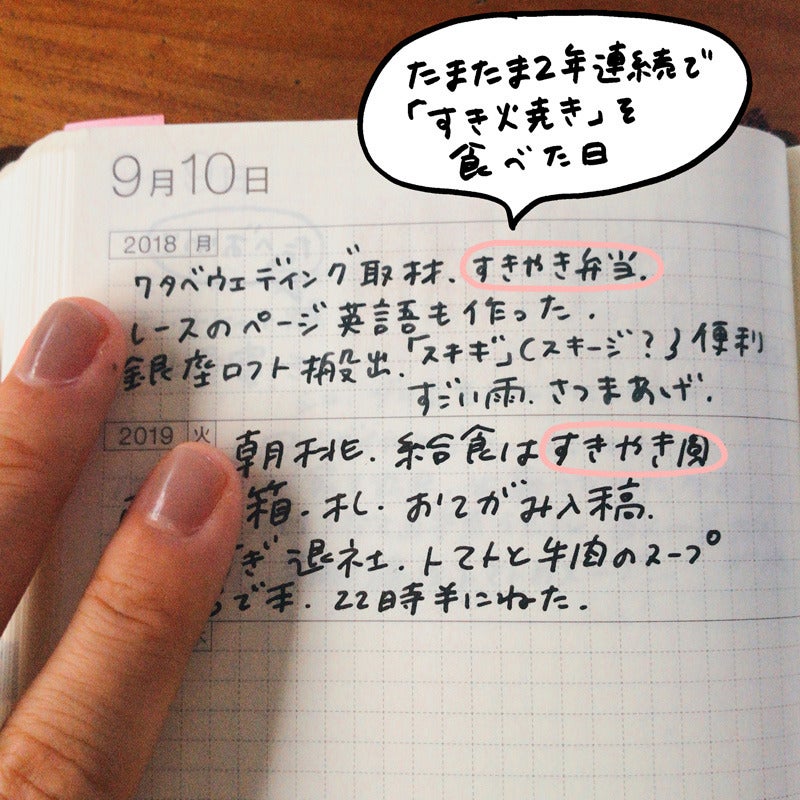 たまたま2年連続で
「すき焼き」を
食べた日
9月10日
2018 月
ワタベウェディング取材、すきやき弁当、
レースのページ英語も作った。
銀座ロフト搬出、「スキギ」(スキージ?)便利
すごい雨、さつまあげ。
2019 火
朝桃、給食はすきやき
箱、札、おてがみ入稿、
ぎ退社、トマトと牛肉のスープ
22時半にねた。